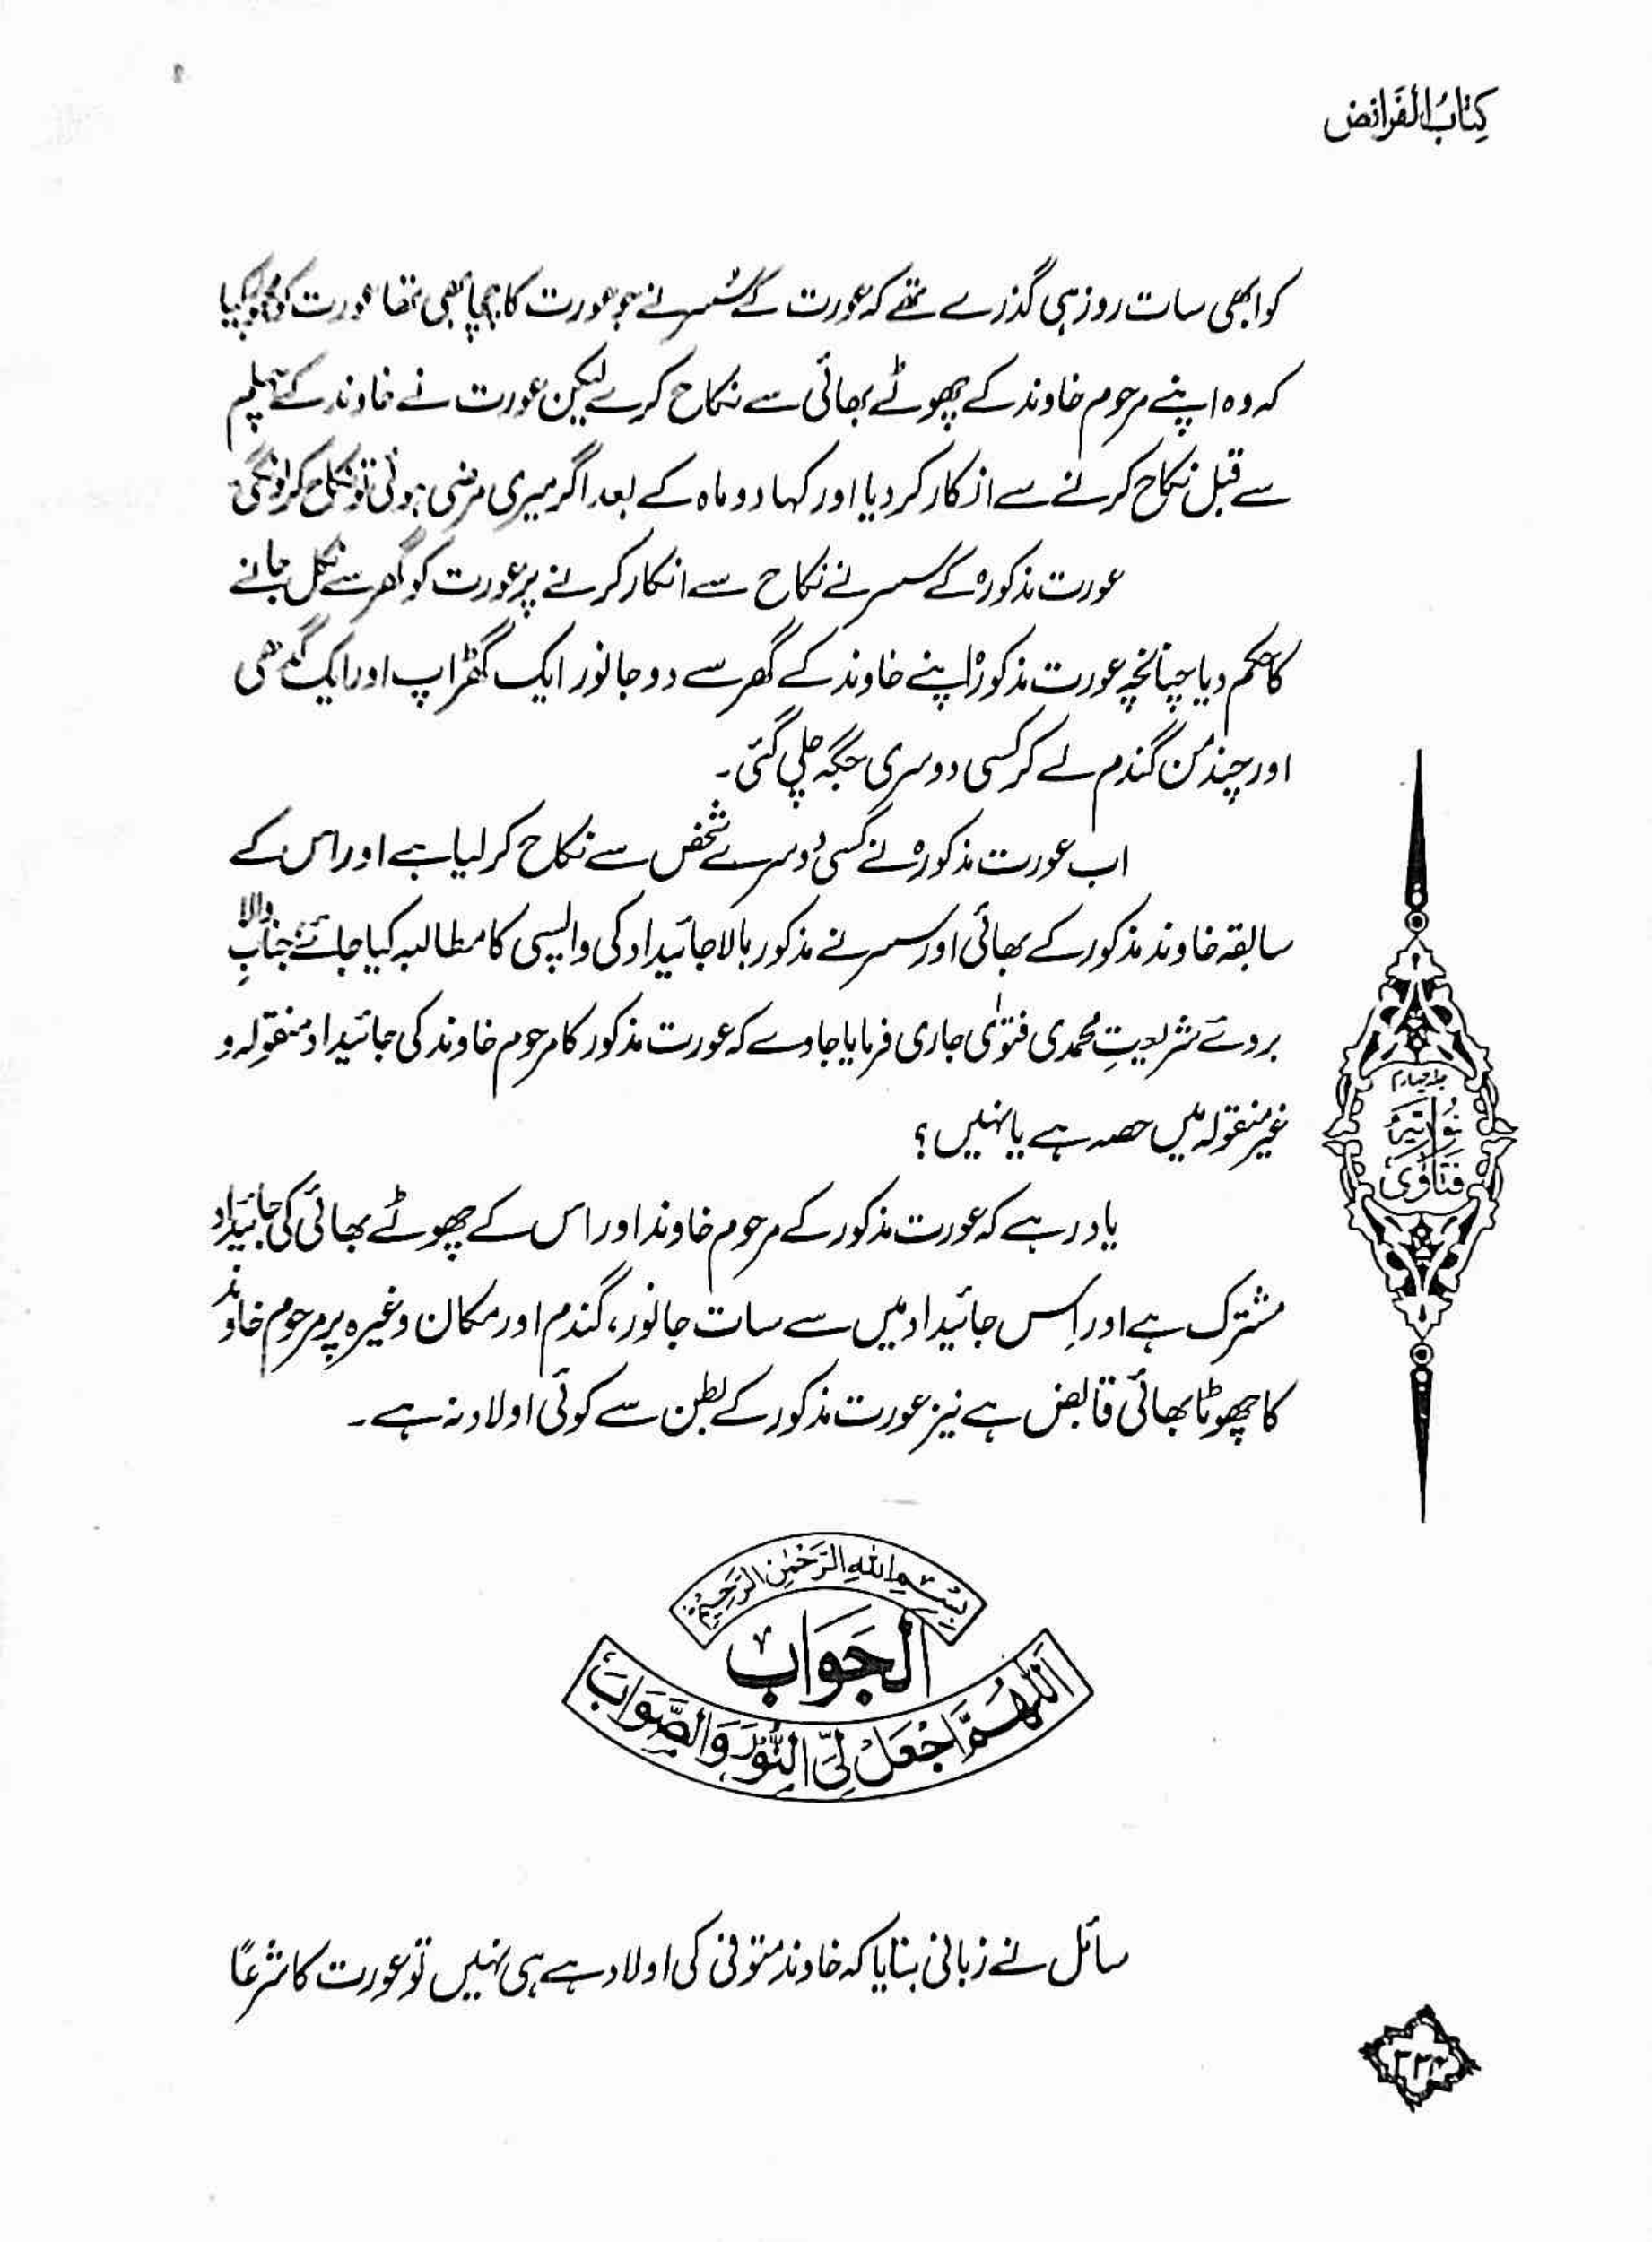 کِتَابُ الفَرَائض
کو ابھی سات روز ہی گذرے تھے کہ عورت کے سُسر نے جو عورت کا چچا بھی تھا عورت کو مجبور کیا
کہ وہ اپنے مرحوم خاوند کے چھوٹے بھائی سے نکاح کرے لیکن عورت نے خاوند کے چہلم
سے قبل نکاح کرنے سے انکار کر دیا اور کہا دو ماہ کے بعد اگر میری مرضی ہوئی تو نکاح کرلونگی۔
عورت مذکورہ کے سسر نے نکاح سے انکار کرنے پر عورت کو گھر سے نکل جانے
کا حکم دیا چنانچہ عورت مذکورہ اپنے خاوند کے گھر سے دو جانور ایک گھڑاپ اور ایک گدھی
اور چند من گندم لے کر کسی دوسری جگہ چلی گئی۔
اب عورت مذکورہ نے کسی دُوسرے شخص سے نکاح کر لیا ہے اور اس کے
سابقہ خاوند مذکور کے بھائی اور سسر نے مذکور بالا جائیداد کی واپسی کا مطالبہ کیا جائے جنابِ والا
بروئے شریعتِ محمدی فتوٰی جاری فرمایا جاوے کہ عورت مذکور کا مرحوم خاوند کی جائیداد منقولہ و
غیر منقولہ میں حصہ ہے یا نہیں؟
یاد رہے کہ عورت مذکور کے مرحوم خاوند اور اس کے چھوٹے بھائی کی جائیداد
مشترک ہے اور اِس جائیداد میں سے سات جانور، گندم اور مکان وغیرہ پر مرحوم خاوند
کا چھوٹا بھائی قابض ہے نیز عورت مذکور کے بطن سے کوئی اولاد نہ ہے۔
جلد چہارم
فَتَاوٰی
نُورِیَّہ
بِسْمِ اللهِ الرَّحْمٰنِ الرَّحِيْمِ
اَلجَوَاب
اَللّٰهُمَّ اجْعَلْ لِیَ النُّوْرَ وَالصَّوَابَ
سائل نے زبانی بتایا کہ خاوند متوفیٰ کی اولاد ہے ہی نہیں تو عورت کا شرعًا